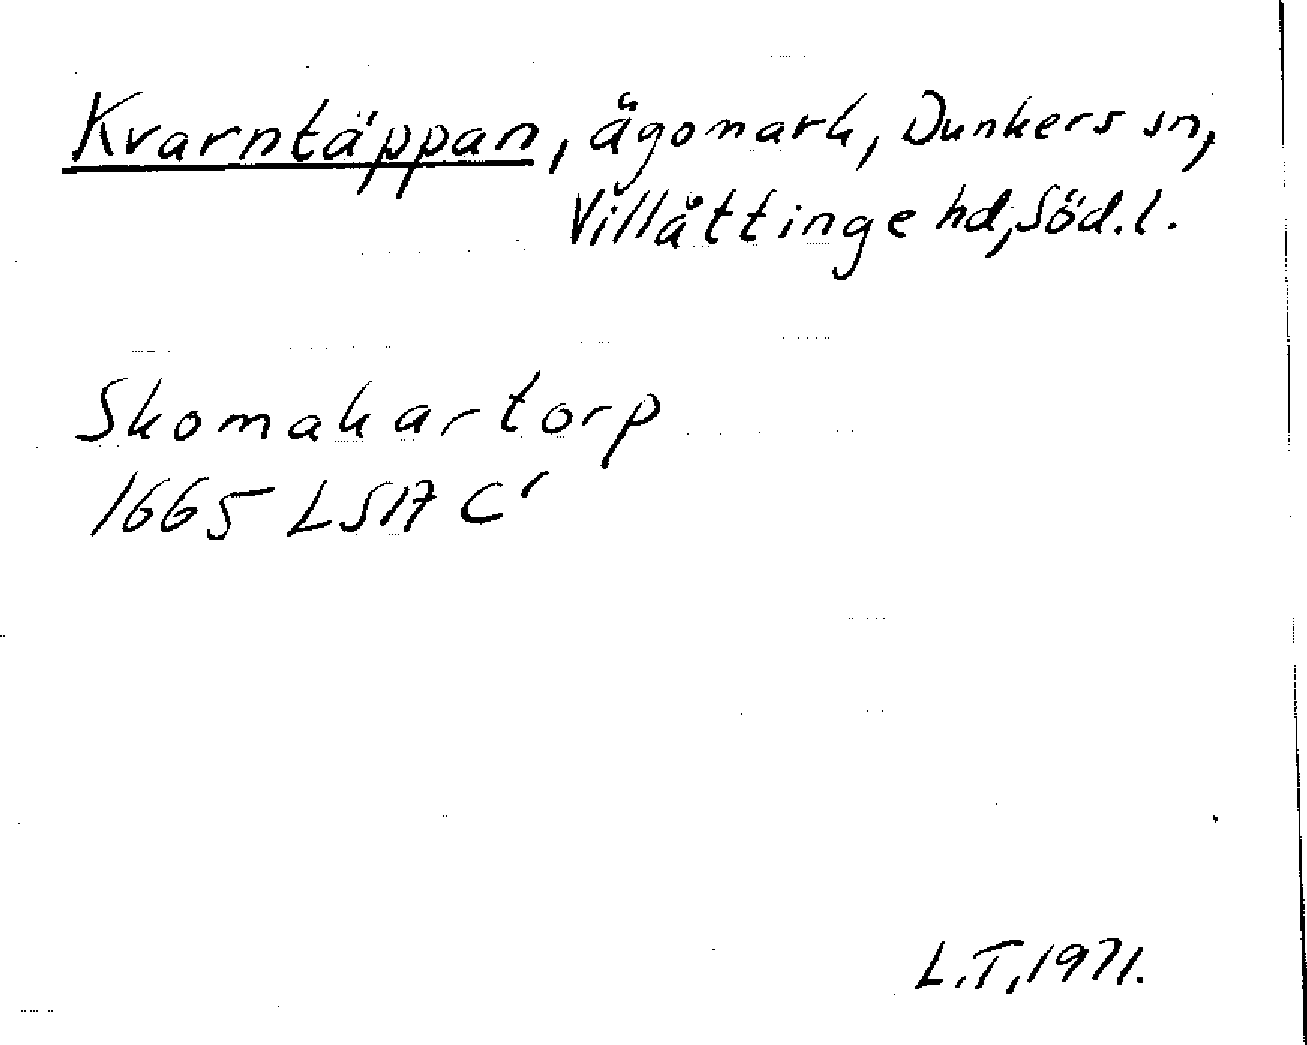 Kvarntäppan, ägomark, Dunkers sn,
Villåttinge hd, Söd.l.
Skomakartorp
1665 LSA C'
L.T, 1971.